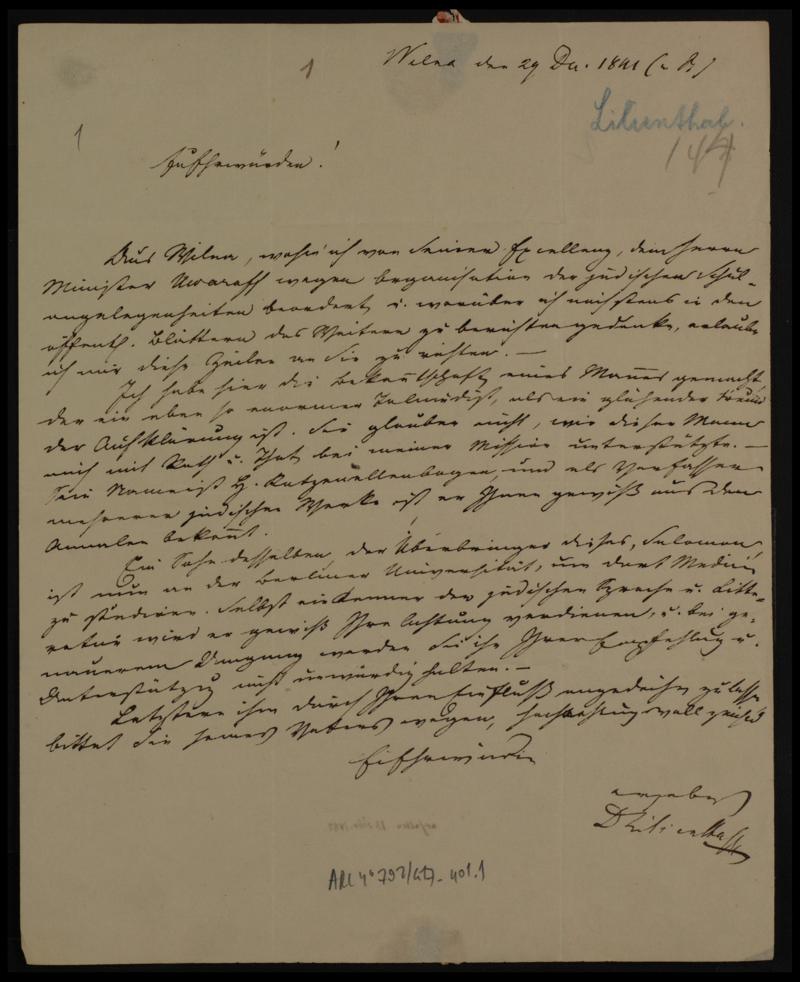 Wilna den 29 Dec. 1841 (a St)
1
Lilienthal.
147
1
Euerehrwürden!
Aus Wilna, wohin ich von Seiner Excellenz, dem Herrn
Minister Uwaroff wegen Organisation der jüdischen Schul-
angelegenheiten beordert, u. worüber ich nächstens in den
öffentl. Blättern des Weitern zu berichten gedenke, erlaube
ich mir diese Zeilen an Sie zu richten. —
Ich habe hier die Bekanntschaft eines Mannes gemacht
der ein eben so enormer Talmudist, als ein glühender Freund
der Aufklärung ist. Sie glauben nicht, wie dieser Mann
mich mit Rath u. That bei meiner Mission unterstützte. —
Sein Name ist H. Katzenellenbogen, und als Verfasser
mehrerer jüdischer Werke ist er Ihnen gewiß aus den
Annalen bekannt.
Ein Sohn desselben, der Überbringer dieses, Salomon
ist nun an der Berliner Universität, um dort Medicin
zu studieren. Selbst ein Kenner der jüdischen Sprache u. Litte-
ratur wird er gewiß Ihre Achtung verdienen, u. bei ge-
nauerem Umgang werden Sie ihn Ihrer Empfehlung u.
Unterstützung nicht unwürdig halten. —
Letztere ihm durch Ihren Einfluß angedeihen zu lassen
bittet Sie seines Vaters wegen, hochachtungsvoll
Euerehrwürden
ergebenster
D Lilienthal
ARC 4° 792/